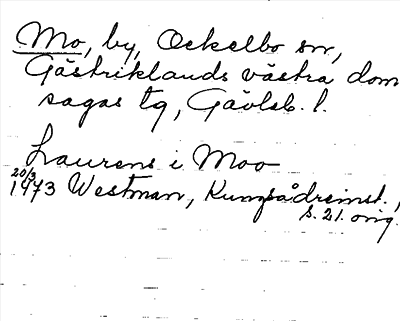 Mo, by, Ockelbo sn,
Gästriklands västra dom
sagas tg, Gävleb. l.
Laurens i Moo
20/3
1473 Westman, Kungsådreinst.,
s. 21. orig.